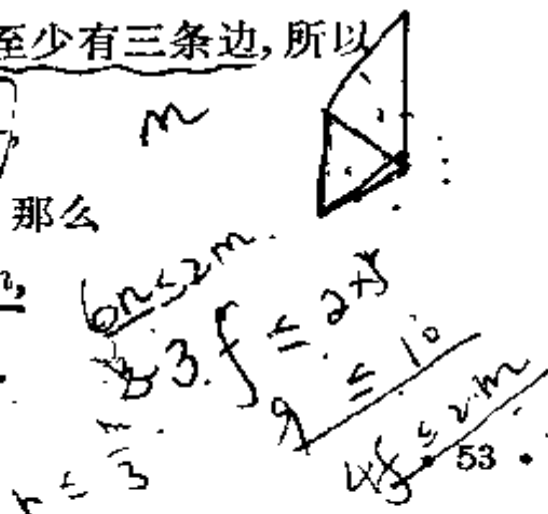 至少有三条边,所以
m
那么
6n≤2m.
3.f ≤ 2×5
9 ≤ 10
4f ≤ 2·m
• 53 •